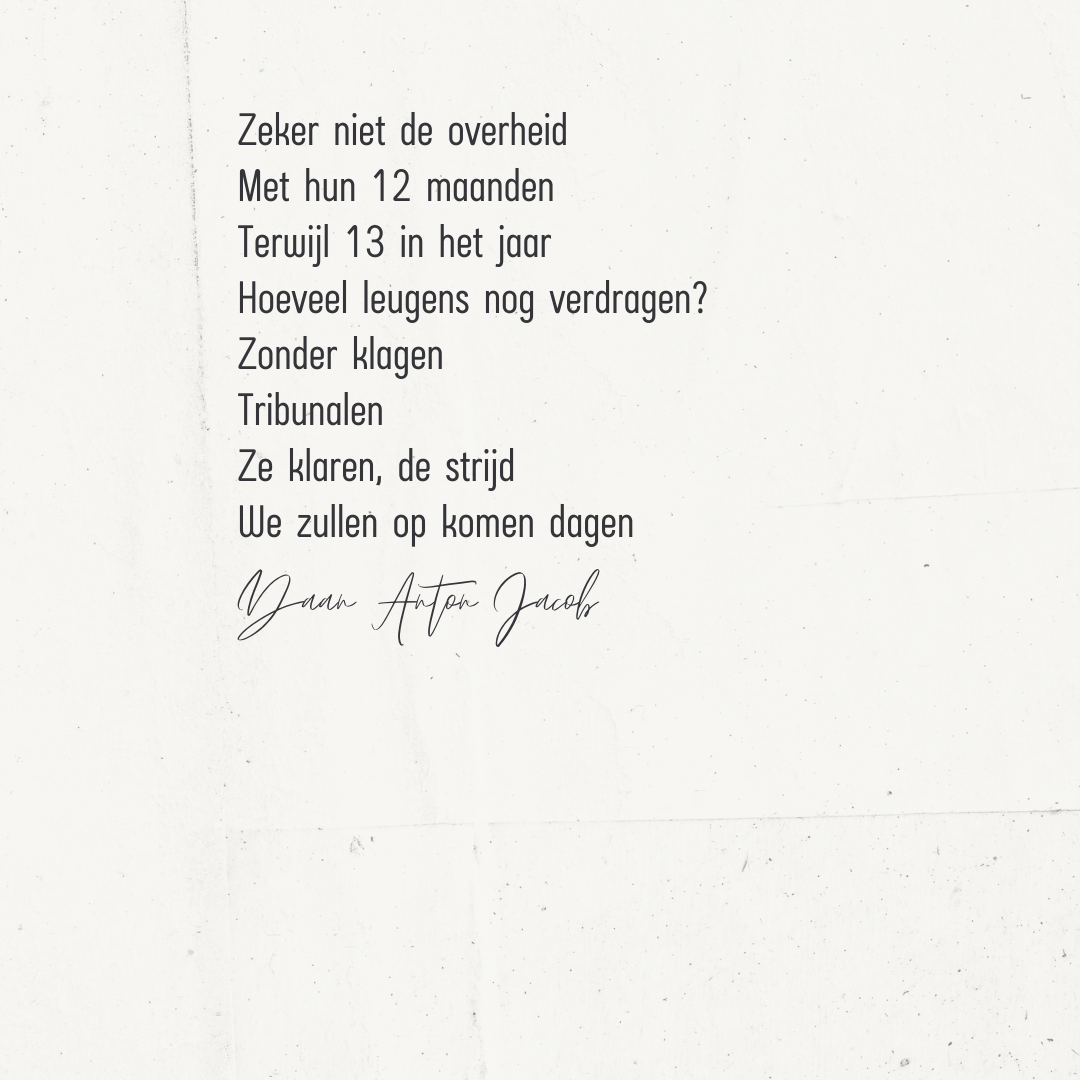 Zeker niet de overheid
Met hun 12 maanden
Terwijl 13 in het jaar
Hoeveel leugens nog verdragen?
Zonder klagen
Tribunalen
Ze klaren, de strijd
We zullen op komen dagen
Daan Anton Jacob